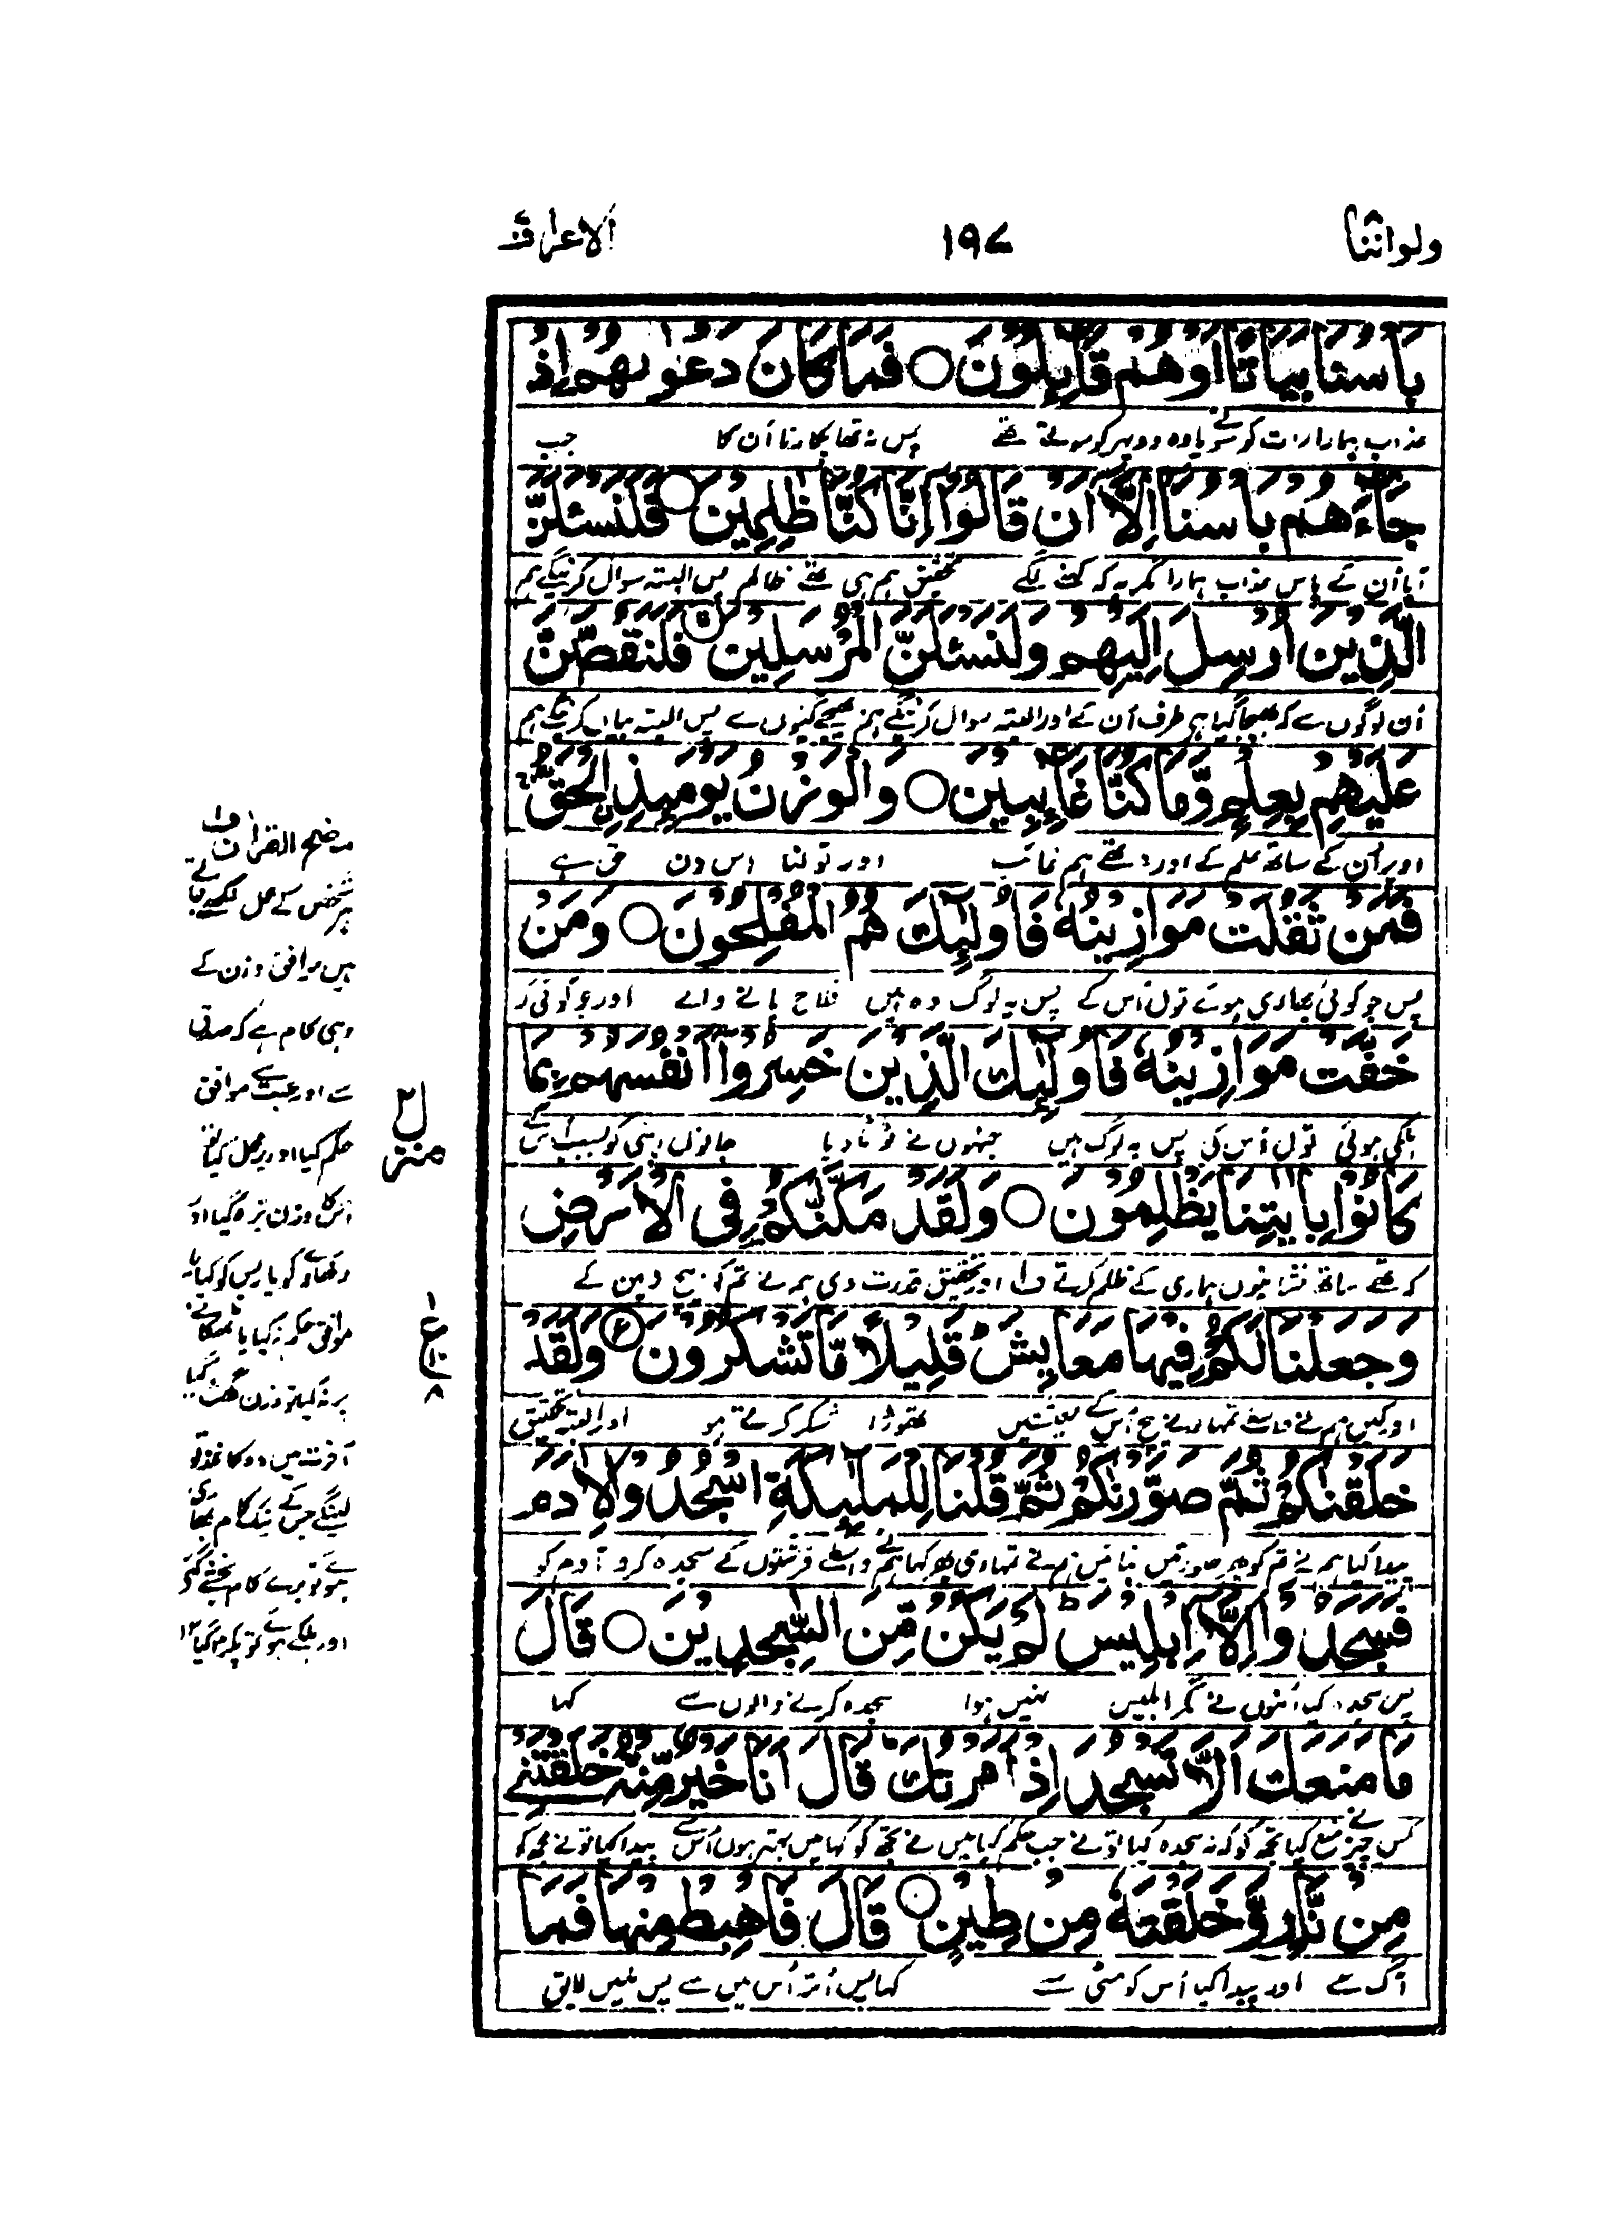 ولواننا
١٩٧
الاعراف
بَأْسُنَا بَيَاتًا أَوْ هُمْ قَائِلُونَ ○ فَمَا كَانَ دَعْوٰىهُمْ إِذْ
عذاب ہمارا رات کو سوتے یا وہ دوپہر کو سوتے تھے پس نہ تھا پکارنا اُن کا جب
جَاءَهُمْ بَأْسُنَا إِلَّا أَنْ قَالُوا إِنَّا كُنَّا ظٰلِمِينَ ○ فَلَنَسْئَلَنَّ
آیا اُن کے پاس عذاب ہمارا مگر یہ کہ کہنے لگے تحقیق ہم ہی تھے ظالم پس البتہ سوال کرینگے ہم
الَّذِينَ أُرْسِلَ إِلَيْهِمْ وَلَنَسْئَلَنَّ الْمُرْسَلِينَ ○ فَلَنَقُصَّنَّ
اُن لوگوں سے کہ بھیجا گیا ہے طرف اُن کے اور البتہ سوال کرینگے ہم بھیجے گیوں سے پس البتہ بیان کرینگے ہم
عَلَيْهِمْ بِعِلْمٍ وَّمَا كُنَّا غَائِبِينَ ○ وَالْوَزْنُ يَوْمَئِذِ الْحَقُّ
اوپر اُن کے ساتھ علم کے اور نہ تھے ہم غائب اور تولنا اس دن حق ہے
فَمَنْ ثَقُلَتْ مَوَازِينُهُ فَأُولٰئِكَ هُمُ الْمُفْلِحُونَ ○ وَمَنْ
پس جو کوئی بھاری ہوئے تول اُس کے پس یہ لوگ وہ ہیں فلاح پانے والے اور جو کوئی کہ
خَفَّتْ مَوَازِينُهُ فَأُولٰئِكَ الَّذِينَ خَسِرُوا أَنْفُسَهُمْ بِمَا
ہلکی ہوئی تول اُس کی پس یہ لوگ ہیں جنہوں نے ٹوٹا دیا جانوں اپنی کو بسبب اس کے
كَانُوا بِاٰيٰتِنَا يَظْلِمُونَ ○ وَلَقَدْ مَكَّنّٰكُمْ فِي الْأَرْضِ
کہ تھے ساتھ نشانیوں ہماری کے ظلم کرتے ف١ اور تحقیق قدرت دی ہم نے تم کو بیچ زمین کے
وَجَعَلْنَا لَكُمْ فِيهَا مَعَايِشَ قَلِيلًا مَّا تَشْكُرُونَ ○ وَلَقَدْ
اور کیں ہم نے واسطے تمہارے بیچ اُس کے معیشتیں تھوڑا شکر کرتے ہو اور البتہ تحقیق
خَلَقْنٰكُمْ ثُمَّ صَوَّرْنٰكُمْ ثُمَّ قُلْنَا لِلْمَلٰئِكَةِ اسْجُدُوا لِاٰدَمَ
پیدا کیا ہم نے تم کو پھر صورتیں بنائیں ہم نے تمہاری پھر کہا ہم نے واسطے فرشتوں کے سجدہ کرو آدم کو
فَسَجَدُوا إِلَّا إِبْلِيسَ لَمْ يَكُنْ مِّنَ السّٰجِدِينَ ○ قَالَ
پس سجدہ کیا اُنہوں نے مگر ابلیس نہیں ہوا سجدہ کرنے والوں سے کہا
مَا مَنَعَكَ أَلَّا تَسْجُدَ إِذْ أَمَرْتُكَ قَالَ أَنَا خَيْرٌ مِّنْهُ خَلَقْتَنِي
کس چیز نے منع کیا تجھ کو کہ نہ سجدہ کیا تو نے جب حکم کیا میں نے تجھ کو کہا میں بہتر ہوں اُس سے پیدا کیا تو نے مجھ کو
مِنْ نَّارٍ وَّخَلَقْتَهُ مِنْ طِينٍ ○ قَالَ فَاهْبِطْ مِنْهَا فَمَا
آگ سے اور پیدا کیا اُس کو مٹی سے کہا پس اُتر اُس میں سے پس نہیں لائق
منزل ٢
ع ١ ١٠ ٨
موضح القرآن ف١
ہر شخص کے عمل لکھے جاتے
ہیں موافق وزن کے
وہی کام ہے کہ صدق
سے اور محبت سے موافق
حکم کیا اور برمحل کیا تو
اُس کا وزن بڑھ گیا اور
دکھاوے کو یا ریس کو کیا یا
موافق حکم نہ کیا یا ٹھکانے
پر نہ کیا تو وزن گھٹ گیا
آخرت میں وہ کاغذ تو
لینگے جس کے نیک کام بھاری
ہوئے تو برے کام بخشے گئے
اور ہلکے ہوئے تو پکڑا گیا ١٢